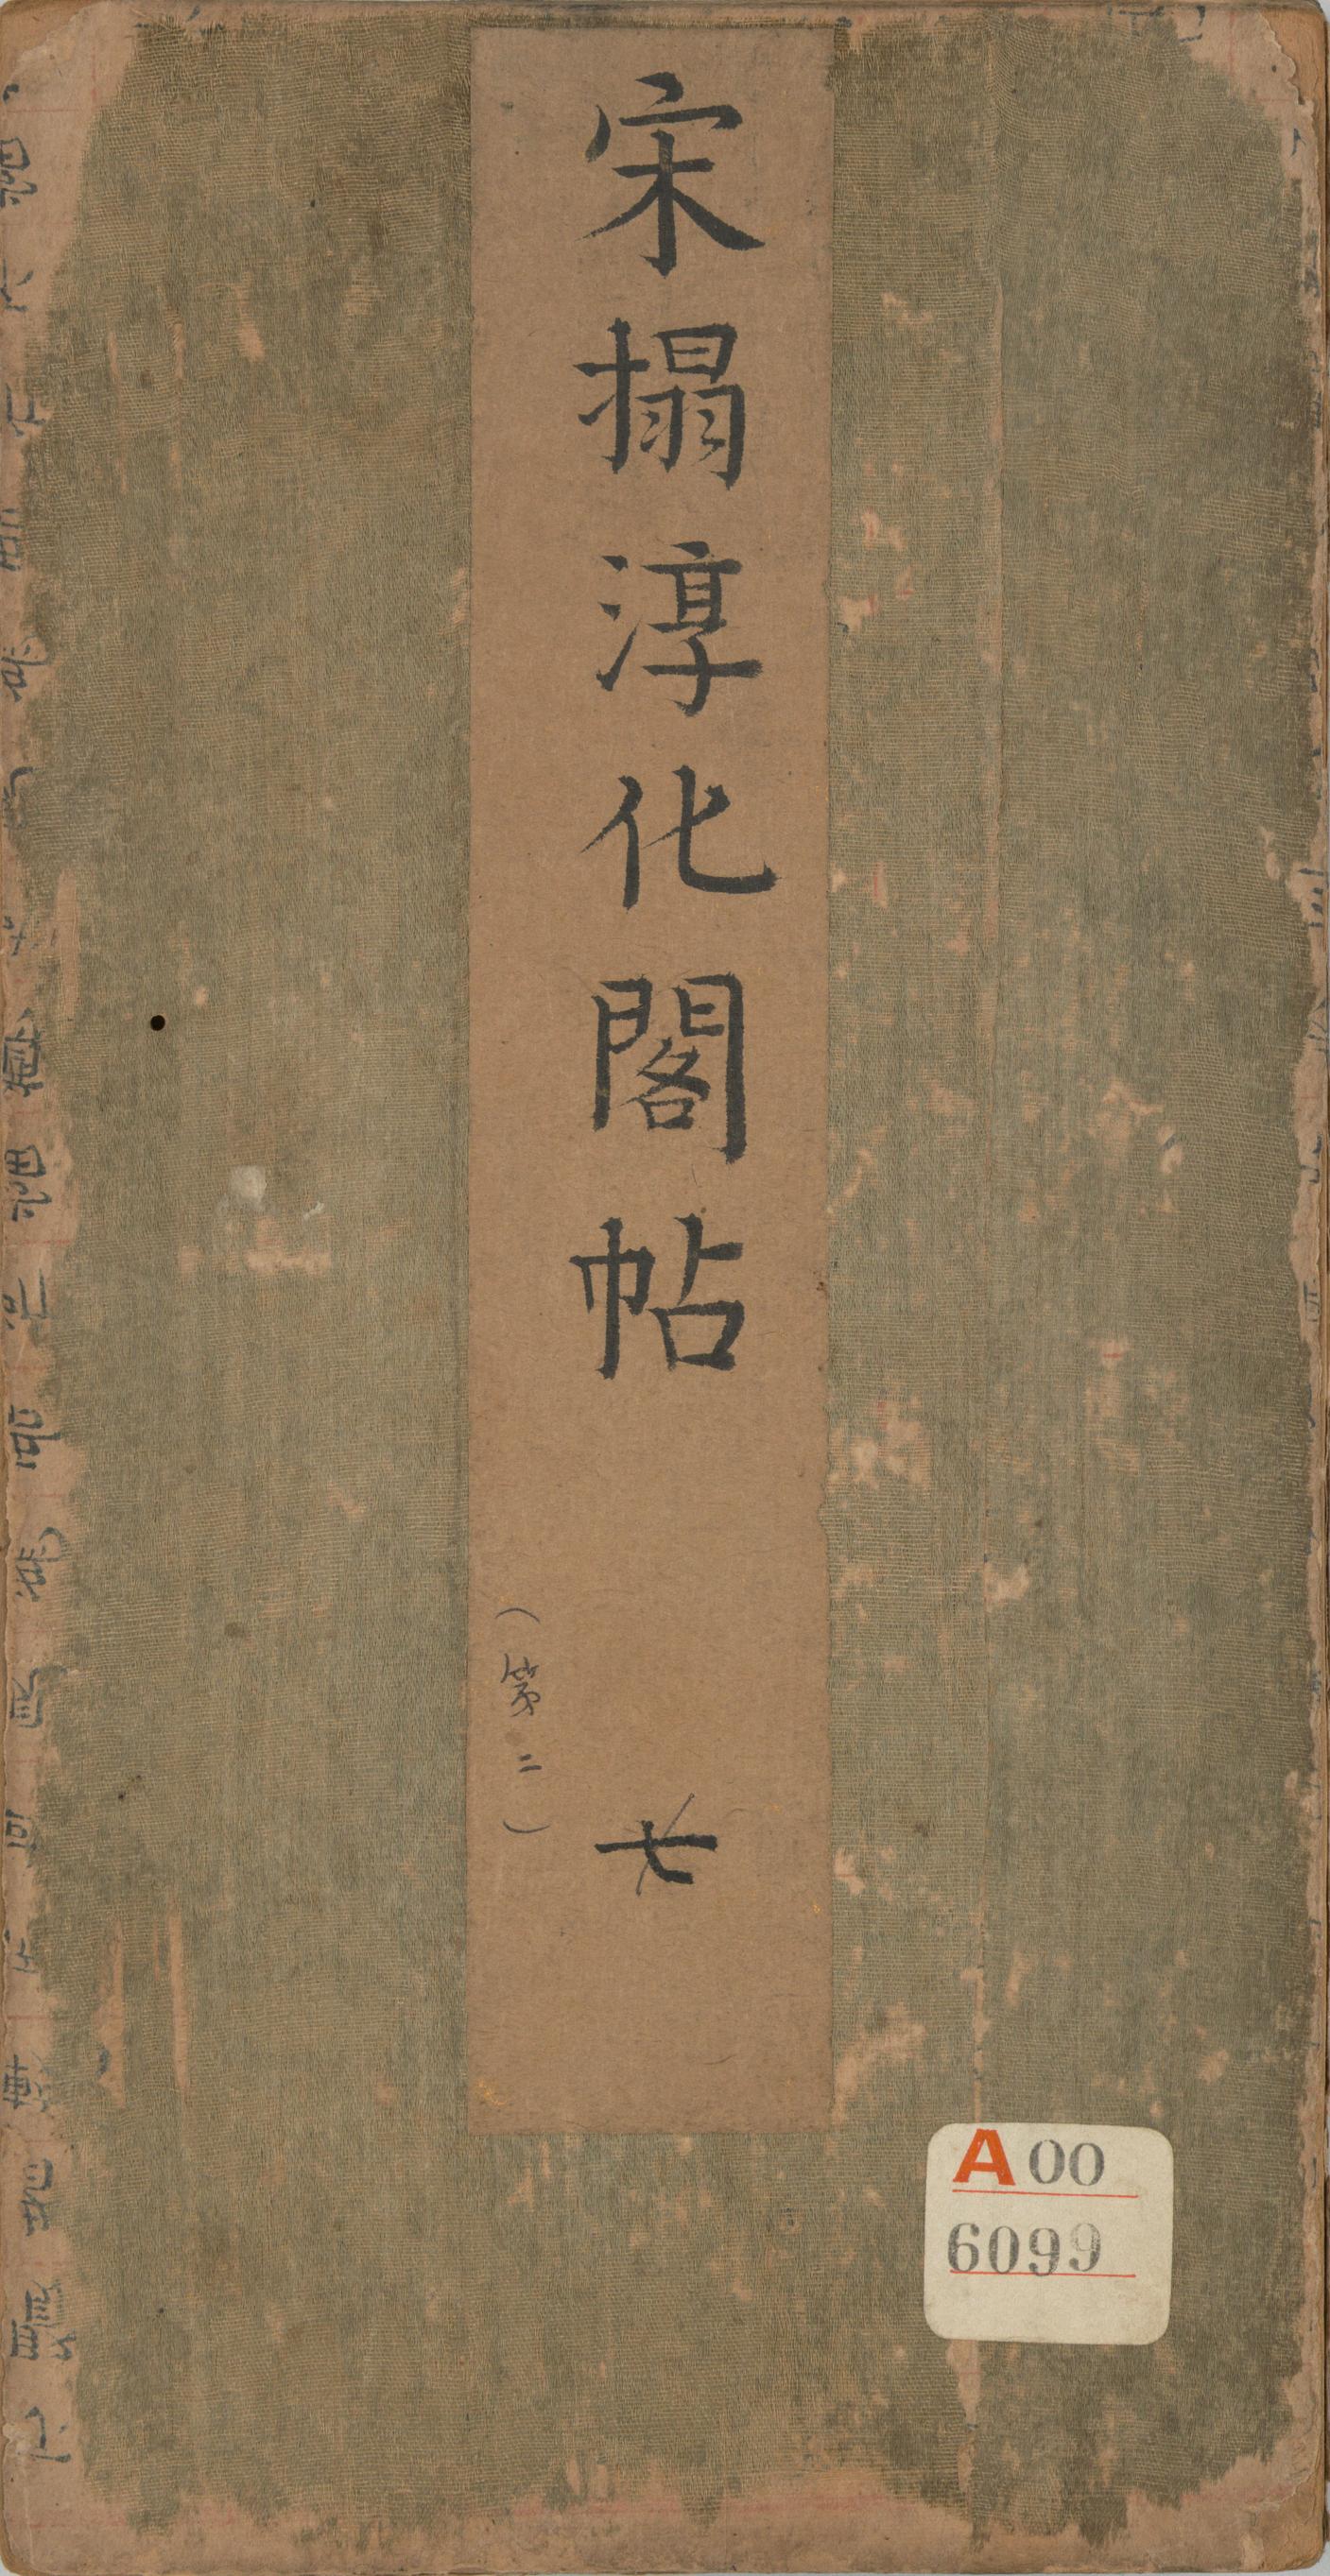 宋搨淳化閣帖 七
（第二）
A00
6099